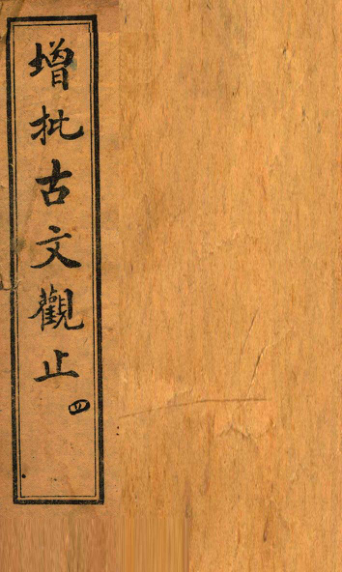 增批古文觀止 四